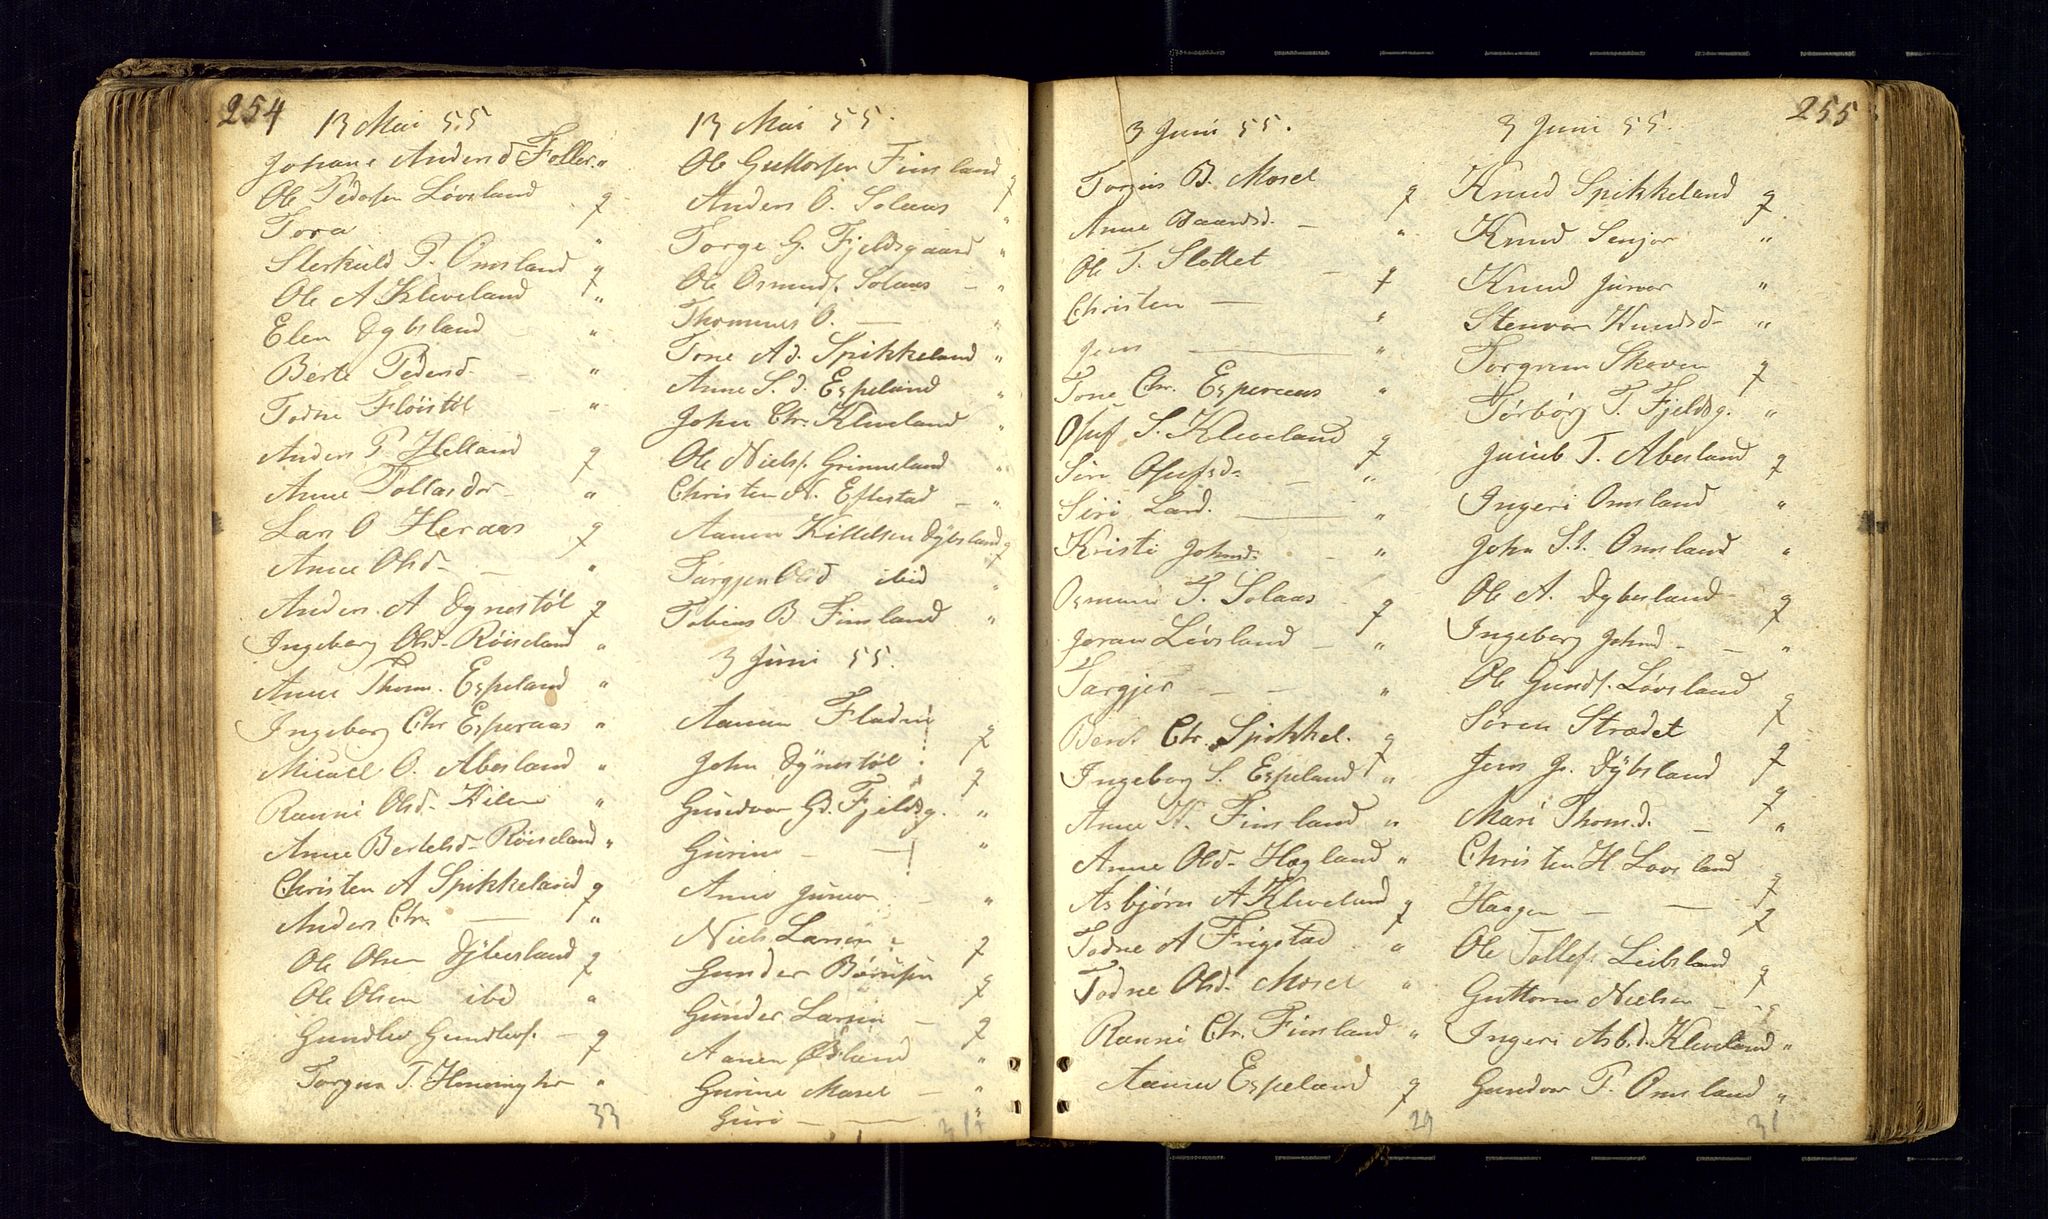 254
13 Mai 55
Johane Andersd Foller. "
Ole Pedersen Løvsland g
Tora "
Sterkuld P. Omsland g
Ole A Kleveland "
Elen Dybsland "
Berte Pedersd. - "
Todne Fløistøl - "
Anders P Helland g
Anne Tollasdr - "
Lars O Heraas g
Anne Olsd - - "
Anders A Dynestøl g
Ingeborg Olsd - Røiseland "
Anne Thom. Espeland "
Ingeborg Chr Esperaas "
Micael O. Abesland "
Ranni Olsd - "
Anne Bertelsd - Røiseland "
Christen A Spikkeland g
Anders Chr. — "
Ole Olsen Dybesland g
Ole Olsen ibid "
Gundlev Gundlevs. - g
Torgun T. "
33
13 Mai 55.
Ole Guttorsen Finsland g
Anders O. Solaas "
Torge G. Fjeldsgaard "
Ole Osmunds. Solaas - "
Thommes O. — "
Tone Ad. Spikkeland "
Anne S. d. Espeland "
John Chr. Kleveland "
Ole Niels. Grimmeland "
Christen N. Eftestad - "
Aanen Kittelsen Dybsland g
Targjer Olsd ibid "
Tobias B. Finsland "
3 Juni 55.
Aanen Fladen g
John Dynestøl . g
Gundvor Gd. Fjeldsg. "
Gurine - - "
Anne Junior - "
Niels Larsen - g
Gunder g
Gunder Larsen - g
Aanen Øisland "
Gurine Mosel - "
Guri - — "
31
255
3 Juni 55.
Torjus B. Mosel g
Anne Baardsd. - "
Ole T. Slottet - g
Christen — "
Jens — "
Tone Chr. Esperaas "
Oluf S. Kleveland g
Siri Olufsd - - "
Siri Larsd. — "
Kristi Johnsd. - "
Osmund T. Solaas - g
Joran Løvsland - "
Targjer - - "
Berte Chr. Spikkel. g
Ingeborg S. Espeland "
Anne N. Finsland "
Anne Olsd - Hægland "
Asbjørn A Kleveland g
Todne A Frigstad . "
Todne Olsd. Mosel "
Ranni Chr. Finsland "
Aanen Espeland g
29
3 Juni 55.
Knud Spikkeland g
Knud Senjor "
Knud Junior "
Stenvor Knudsd - "
Torgrim Skoven g
Torborg T. Fjeldsg. "
Jacob T. Abesland g
Ingeri Omsland "
John S.s. Omsland "
Ole A. Dybesland - g
Ingeborg Johnsd - - "
Ole Gunds. Løvsland g
Søren Strædet g
Jens Js. Dybsland g
Mari Thom.d. - "
Christen H Lovsland g
Haagen - - g
Ole Tollefs. Leibsland g
Guttorm Nielsen - g
Ingeri Asb.d. Kleveland "
Gundvor P. Omsland "
31